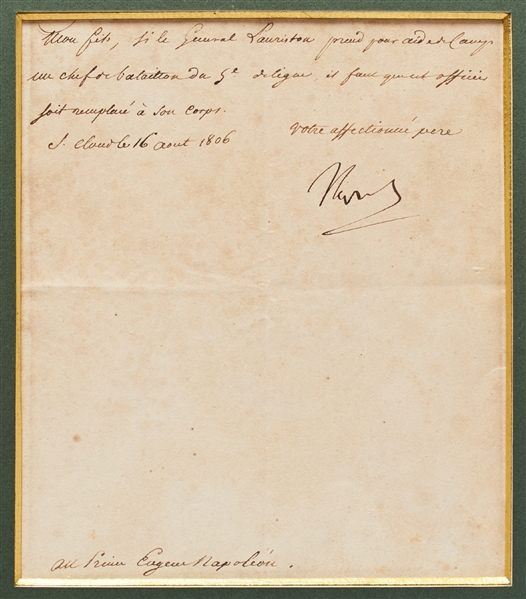 Mon fils, si le General Lauriston prend pour aide de Camp
un chef de bataillon du 5e de ligne, il faut que cet officier
soit remplacé à son corps.
S. Cloud le 16 aout 1806
Votre affectionné pere
Nap
au Prince Eugene Napoléon.